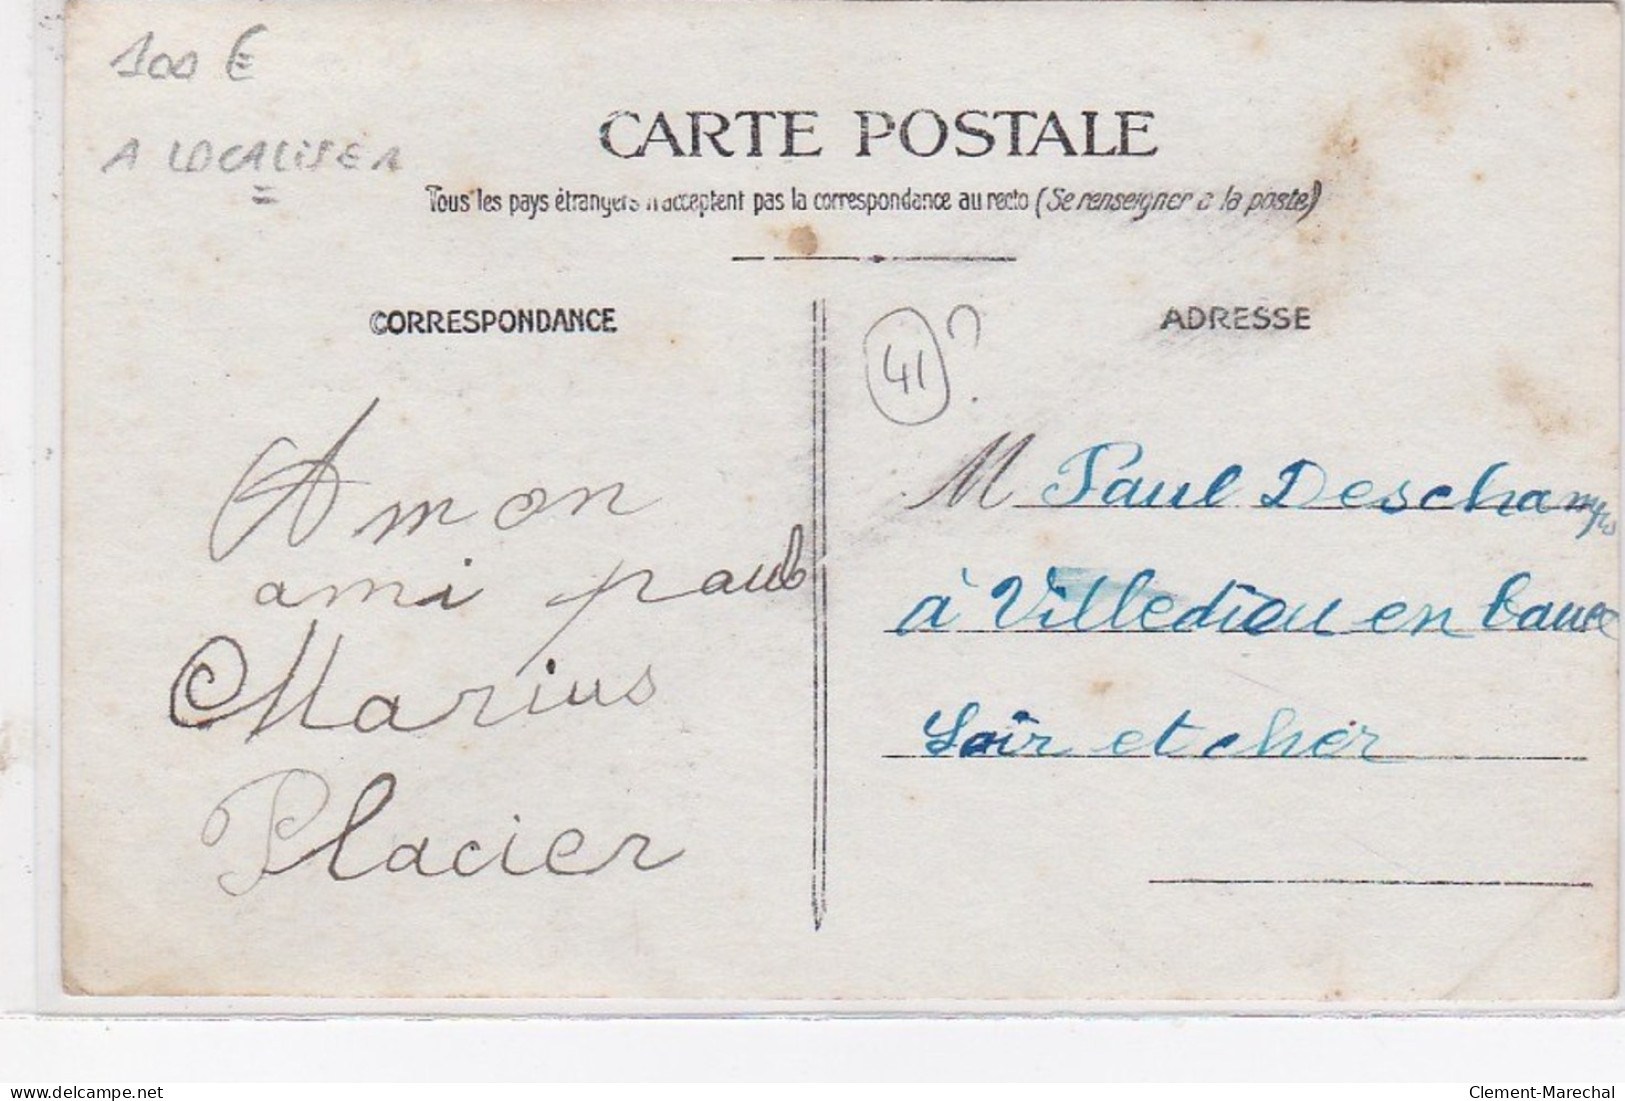 100 €
A LOCALISER
CARTE POSTALE
Tous les pays étrangers n'acceptent pas la correspondance au recto (Se renseigner à la poste)
CORRESPONDANCE
ADRESSE
41 ?
A mon
ami paul
Marius
Placier
M Paul Deschamps
à Villedieu en bauce
Loir et cher
delcampe.net
Clement-Marechal